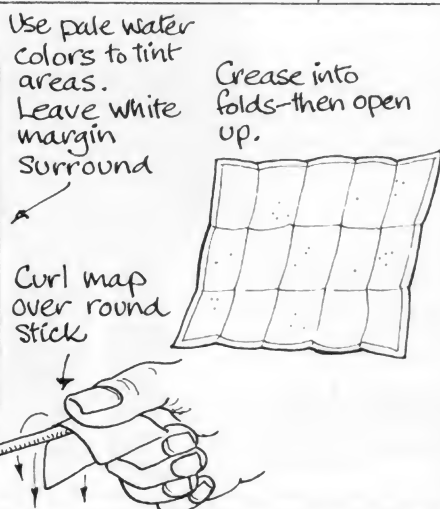 Use pale water
colors to tint
areas.
Leave white
margin
Surround
Crease into
folds-then open
up.
Curl map
over round
stick